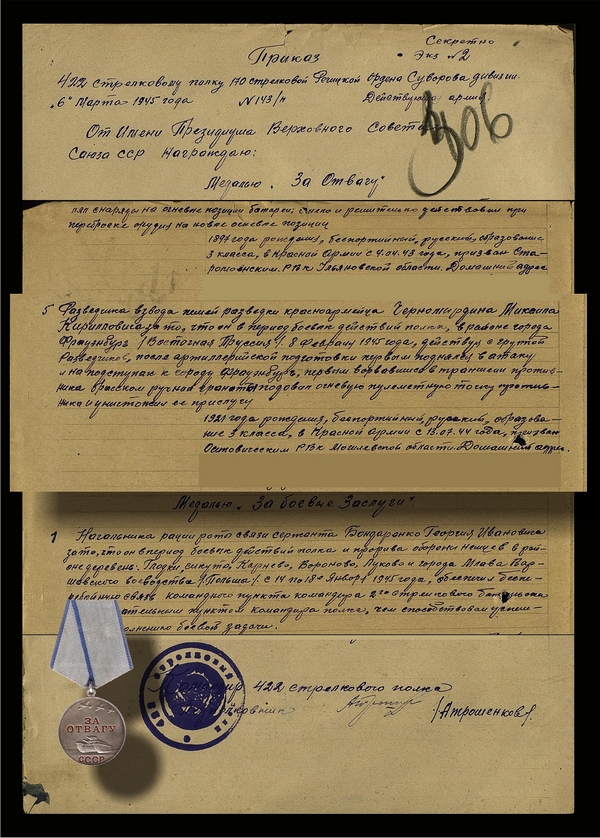 Секретно
Экз №2
Приказ
422 стрелковому полку 170 стрелковой Речицкой Ордена Суворова дивизии.
"6" Марта 1945 года №143/н Действующая армия.
306
От имени Президиума Верховного Совета
Союза ССР Награждаю:
Медалью "За Отвагу"
снаряды на огневые позиции батареи. Смело и решительно действовал при
переброске орудия на новые огневые позиции
1897 года рождения, беспортийный, русский, образование
3 класса, в Красной Армии с 4.04.43 года, призван Ста-
ромаинским РВК Ульяновской области. Домашний адрес
5 Разведчика взвода пешей разведки красноармейца Черномырдина Михаила
Кирилловича за то, что он в период боевых действий полка, в районе города
Фрауэнбург /Восточная Пруссия/ 8 февраля 1945 года, действуя с группой
Разведчиков, после артиллерийской подготовки первым поднялся в атаку
и на подступах к городу Фрауэнбург, первым ворвавшись в траншеи против-
ника броском ручной гранаты подавил огневую пулеметную точку против-
ника и уничтожил ее прислугу
1921 года рождения, беспортийный, русский, образова-
ние 3 класса, в Красной Армии с 13.07.44 года, призван
Осиповическим РВК Могилевской области. Домашний адрес.
Медалью "За боевые Заслуги"
1 Начальника рации роты связи сержанта Бондаренко Георгия Ивановича
за то, что он в период боевых действий полка и прорыва обороны немцев в рай-
оне деревень: Глодки, Карнево, Вороново, Луково и города Млава Вар-
шавского воеводства /Польша/ с 14 по 18 Января 1945 года, обеспечил беспе-
ребойную связь командного пункта командира 2го стрелкового батальона
ательным пунктом командира полка, чем способствовал успеш-
олнению боевой задачи.
Командир 422 стрелкового полка
Полковник /Атрошенков/.
ЗА
ОТВАГУ
СССР